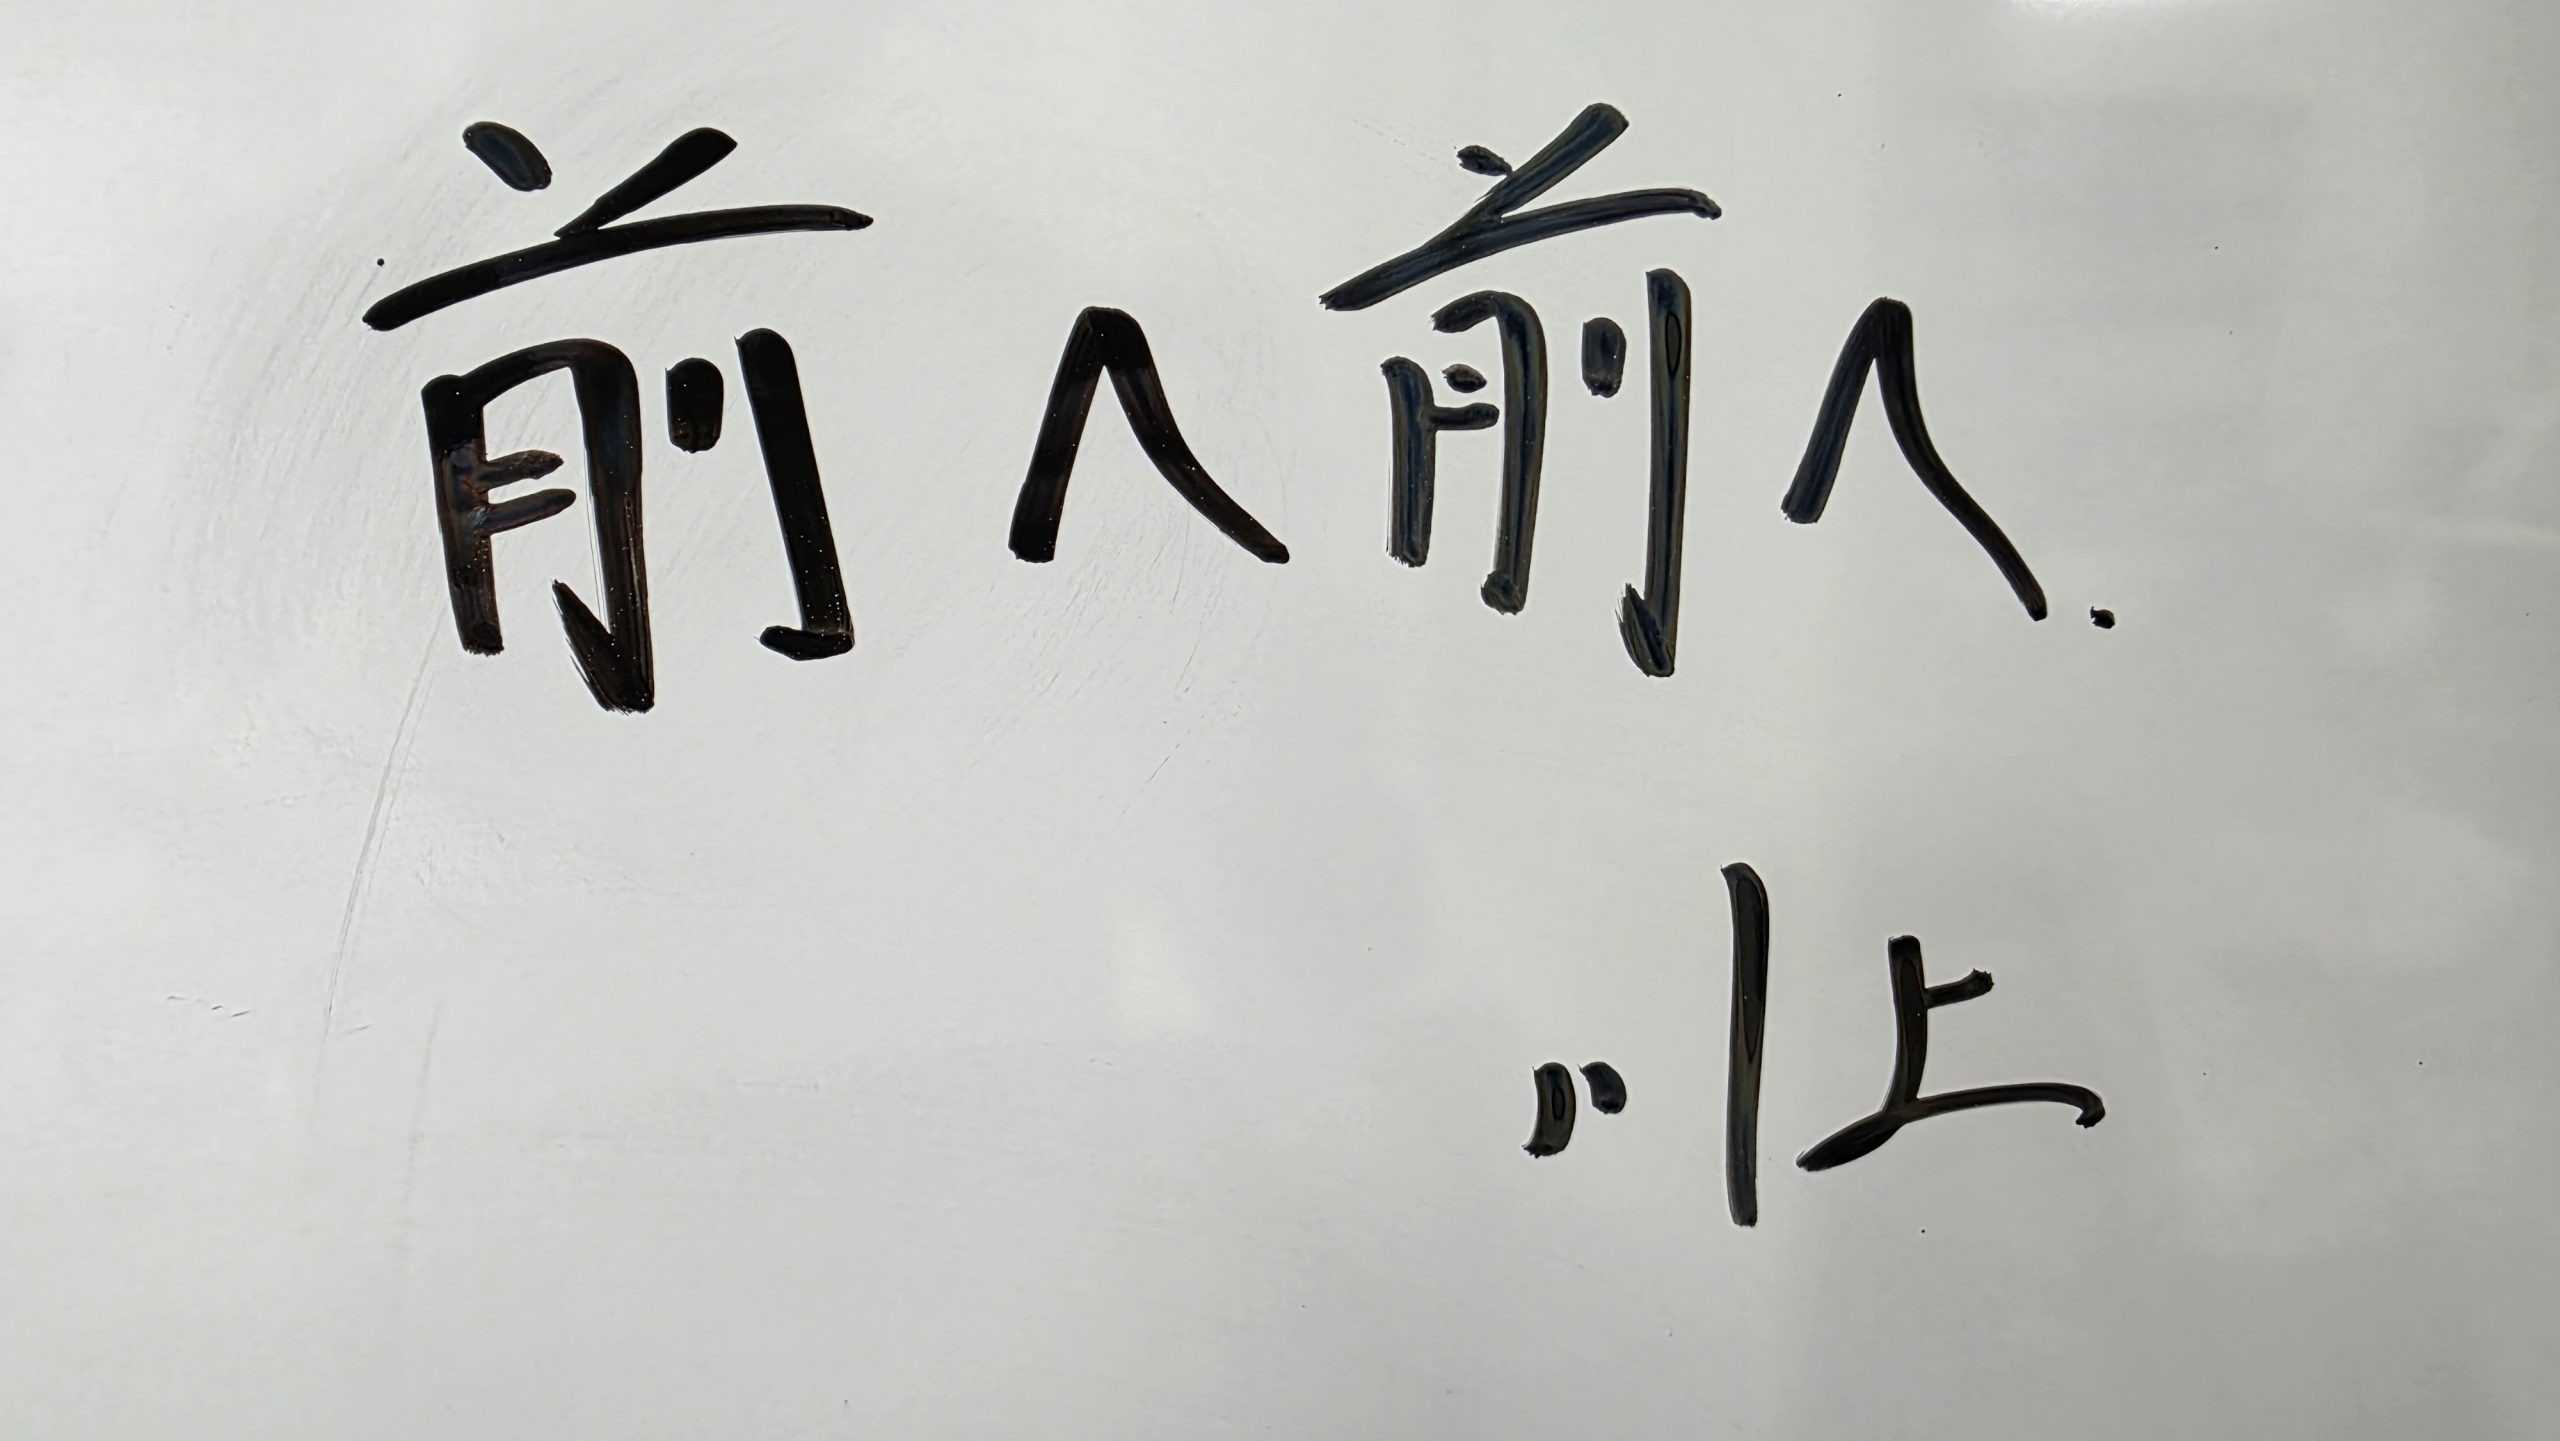 前へ前へ.
以上